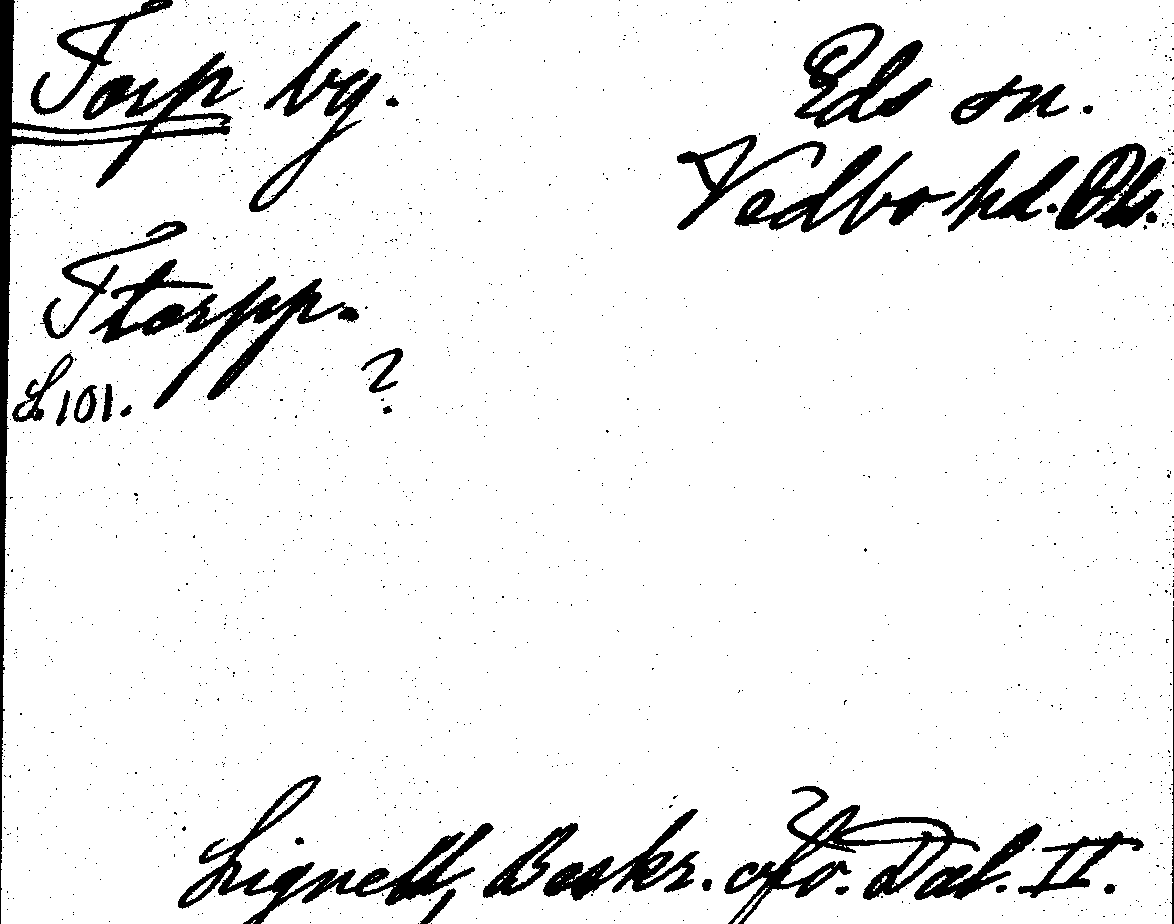 Torp by.
Eds sn.
Vedbo hd. Dls.
Ttorpp.
?
S. 101.
Lignell, Beskr. öfv. Dal. II.